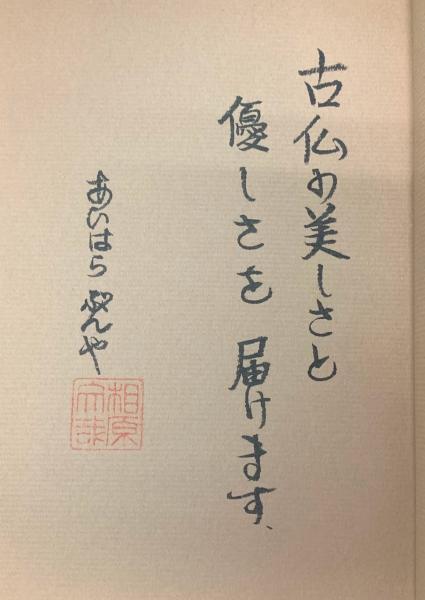 古仏の美しさと
優しさを 届けます、
あいはら ぶんや
相原
文哉